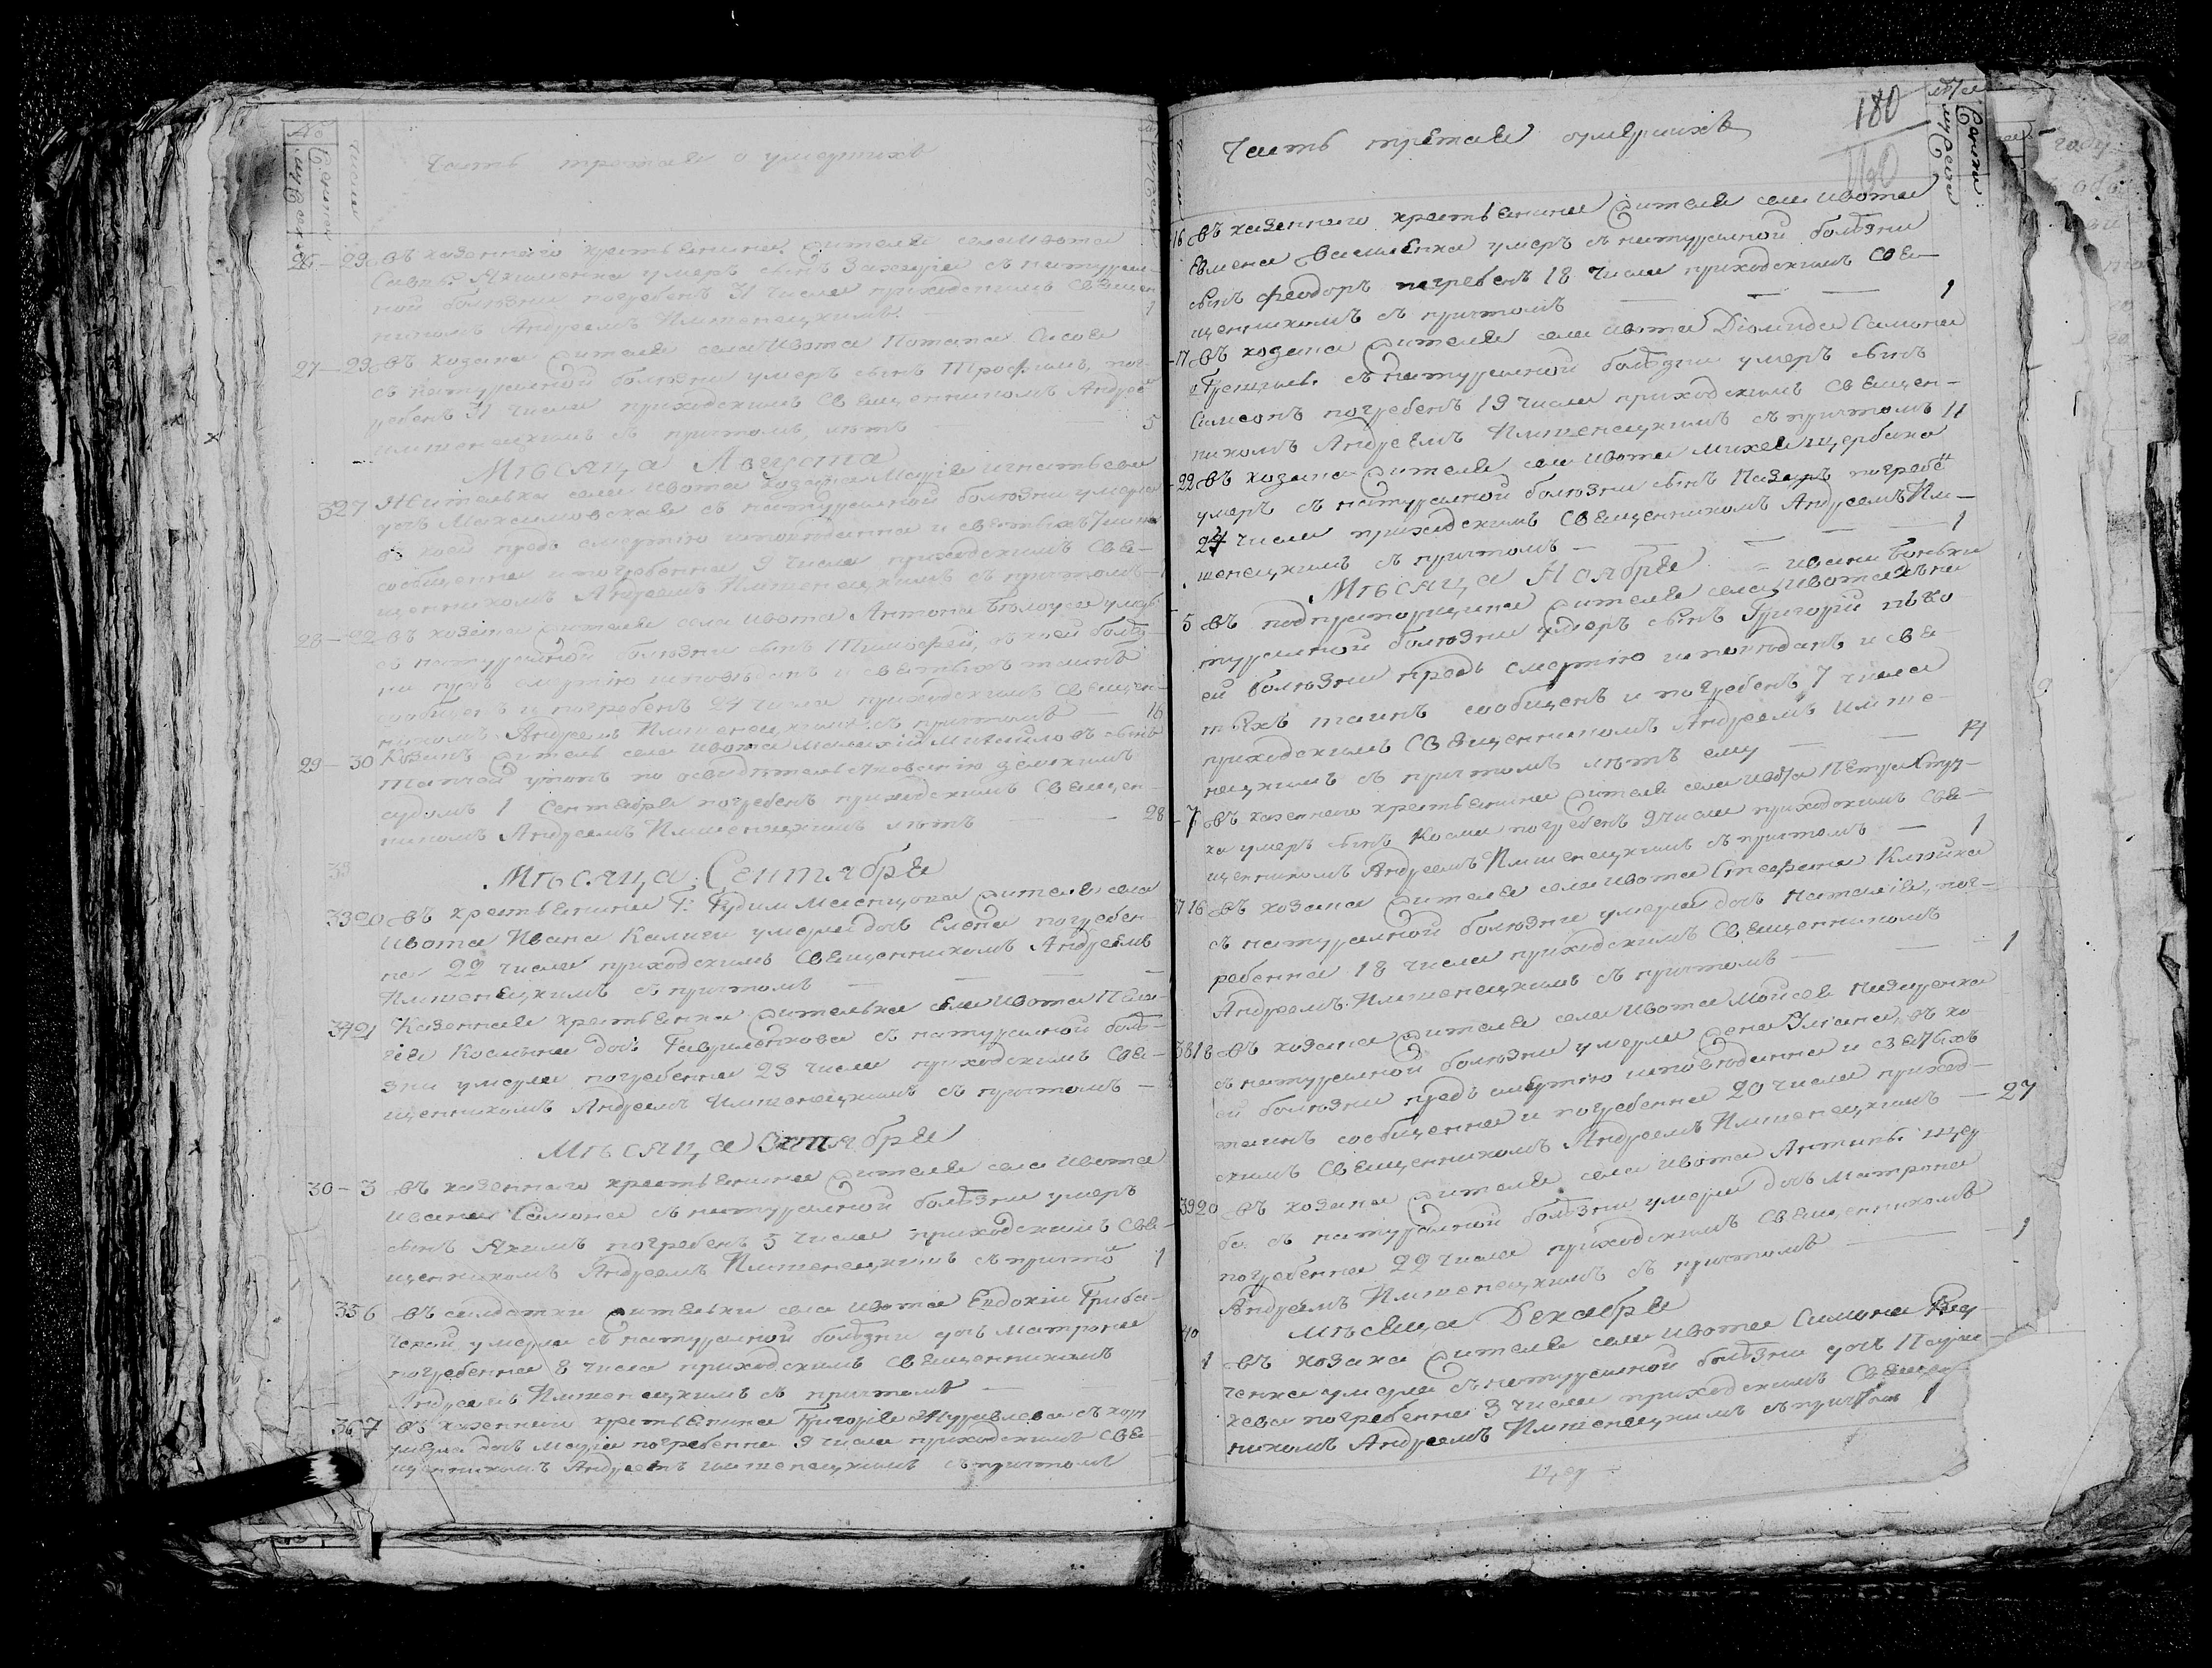 Часть третая о умершихъ
26 - 29 Въ казеннаго крестьянина жителя села Ивота
Акименка умеръ сынъ Захарія съ натураль-
ной болѣзни погребенъ 31 числа приходскимъ Священ-
никомъ Андреемъ Имшенецкимъ 1
27 - 29 Въ козака жителя села Ивота Потапа Сисоя
съ натуральной болѣзни умеръ сынъ Трофимъ, пог-
ребенъ 31 числа приходскимъ Священникомъ Андрее
Имшенецкимъ съ причтомъ, лѣтъ 5
Мѣсяца Августа
32 7 Жителька села Ивота козачка Марія Игнатьева
дочь Максимовская съ натуральной болѣзни умерла
въ коей предъ смертію исповѣданна и святыхъ таинъ
сообщенна и погребенна 9 числа приходскимъ Свя-
щенникомъ Андреемъ Имшенецкимъ съ причтомъ
28 - 22 Въ козака жителя села Ивота Антона Бѣлоуса умеръ
съ натуральной болѣзни сынъ Тимофей, въ коей болѣз-
ни предъ смертію исповѣданъ и святыхъ таинъ
сообщенъ и погребенъ 24 числа приходскимъ Священ-
никомъ Андреемъ Имшенецкимъ съ причтомъ 16
29 - 30 Козакъ житель села Ивота Малахій Михайловъ сынъ
утопъ по освидѣтельствованію земскимъ
судомъ 1 Сентября погребенъ приходскимъ Священ-
никомъ Андреемъ Имшенецкимъ лѣтъ 28
33
Мѣсяца Сентября
33 20 Въ крестьянина Г: жителя села
Ивота Ивана Калиги умерла дочь Елена погребен-
на 22 числа приходскимъ Священникомъ Андреемъ
Имшенецкимъ съ причтомъ
34 21 Казенная крестьянка жителька села Ивота Пела-
гея Космина дочь Гавриленкова съ натуральной болѣ-
зни умерла погребенна 23 числа приходскимъ Свя-
щенникомъ Андреемъ Имшенецкимъ съ причтомъ
Мѣсяца Октября
30 - 3 Въ казеннаго крестьянина жителя села Ивота
Ивана Самона съ натуральной болѣзни умеръ
сынъ Якимъ погребенъ 5 числа приходскимъ Свя-
щенникомъ Андреемъ Имшенецкимъ съ причто 1
35 6 Въ салдатки жительки села Ивота Евдокіи Гриба-
чевой умерла съ натуральной болѣзни дочь Матрона
погребенна 8 числа приходскимъ Священникомъ
Андреемъ Имшенецкимъ съ причтомъ
36 7 Въ казеннаго крестьянина Григорія Журавлева съ кори
умерла дочь Марія погребенна 9 числа приходскимъ Свя-
щенникомъ Андреемъ Имшенецкимъ съ причтомъ
Часть третая о умершихъ
180
16 Въ казеннаго крестьянина жителя села Ивота
Евмена Василенка умеръ съ натуральной болѣзни
сынъ Феодоръ погребенъ 18 числа приходскимъ Свя-
щенникомъ съ причтомъ 1
17 Въ козака жителя села Ивота Діомида Самона
съ натуральной болѣзни умеръ сынъ
Симеонъ погребенъ 19 числа приходскимъ Священ-
никомъ Андреемъ Имшенецкимъ съ причтомъ 11
22 Въ козака жителя села Ивота Михея Щербака
умеръ съ натуральной болѣзни сынъ Назаръ погребе
24 числа приходскимъ Священникомъ Андреемъ Им-
шенецкимъ съ причтомъ 1
Мѣсяца Ноября
5 Въ подпрапорщика жителя села Ивота съ на
туральной болѣзни умеръ сынъ Григорій въ ко
ей болѣзни предъ смертію исповѣданъ и свя-
тыхъ таинъ сообщенъ и погребенъ 7 числа
приходскимъ Священникомъ Андреемъ Имше-
нецкимъ съ причтомъ лѣтъ ему 14
7 Въ казеннаго крестьянина жителя села Ивота Петра
ка умеръ сынъ Косма погребенъ 9 числа приходскимъ Свя-
щенникомъ Андреемъ Имшенецкимъ съ причтомъ 1
37 16 Въ козака жителя села Ивота Стефана Клюйка
съ натуральной болѣзни умерла дочь Наталія, пог-
ребенна 18 числа приходскимъ Священникомъ
Андреемъ Имшенецкимъ съ причтомъ 1
38 18 Въ козака жителя села Ивота Мойсея Назаренка
съ натуральной болѣзни умерла жена Уліана, въ ко-
ей болѣзни предъ смертію исповѣданна и святыхъ
таинъ сообщенна и погребенна 20 числа приход-
скимъ Священникомъ Андреемъ Имшенецкимъ 27
39 20 Въ козака жителя села Ивота Антипы
съ натуральной болѣзни умерла дочь Матрона
погребенна 22 числа приходскимъ Священникомъ
Андреемъ Имшенецкимъ съ причтомъ 1
Мѣсяца Декабря
40 1 Въ козака жителя села Ивота Симона
ченка умерла съ натуральной болѣзни дочь Параске-
ва погребенна 3 числа приходскимъ Священ-
никомъ Андреемъ Имшенецкимъ съ причтом 1